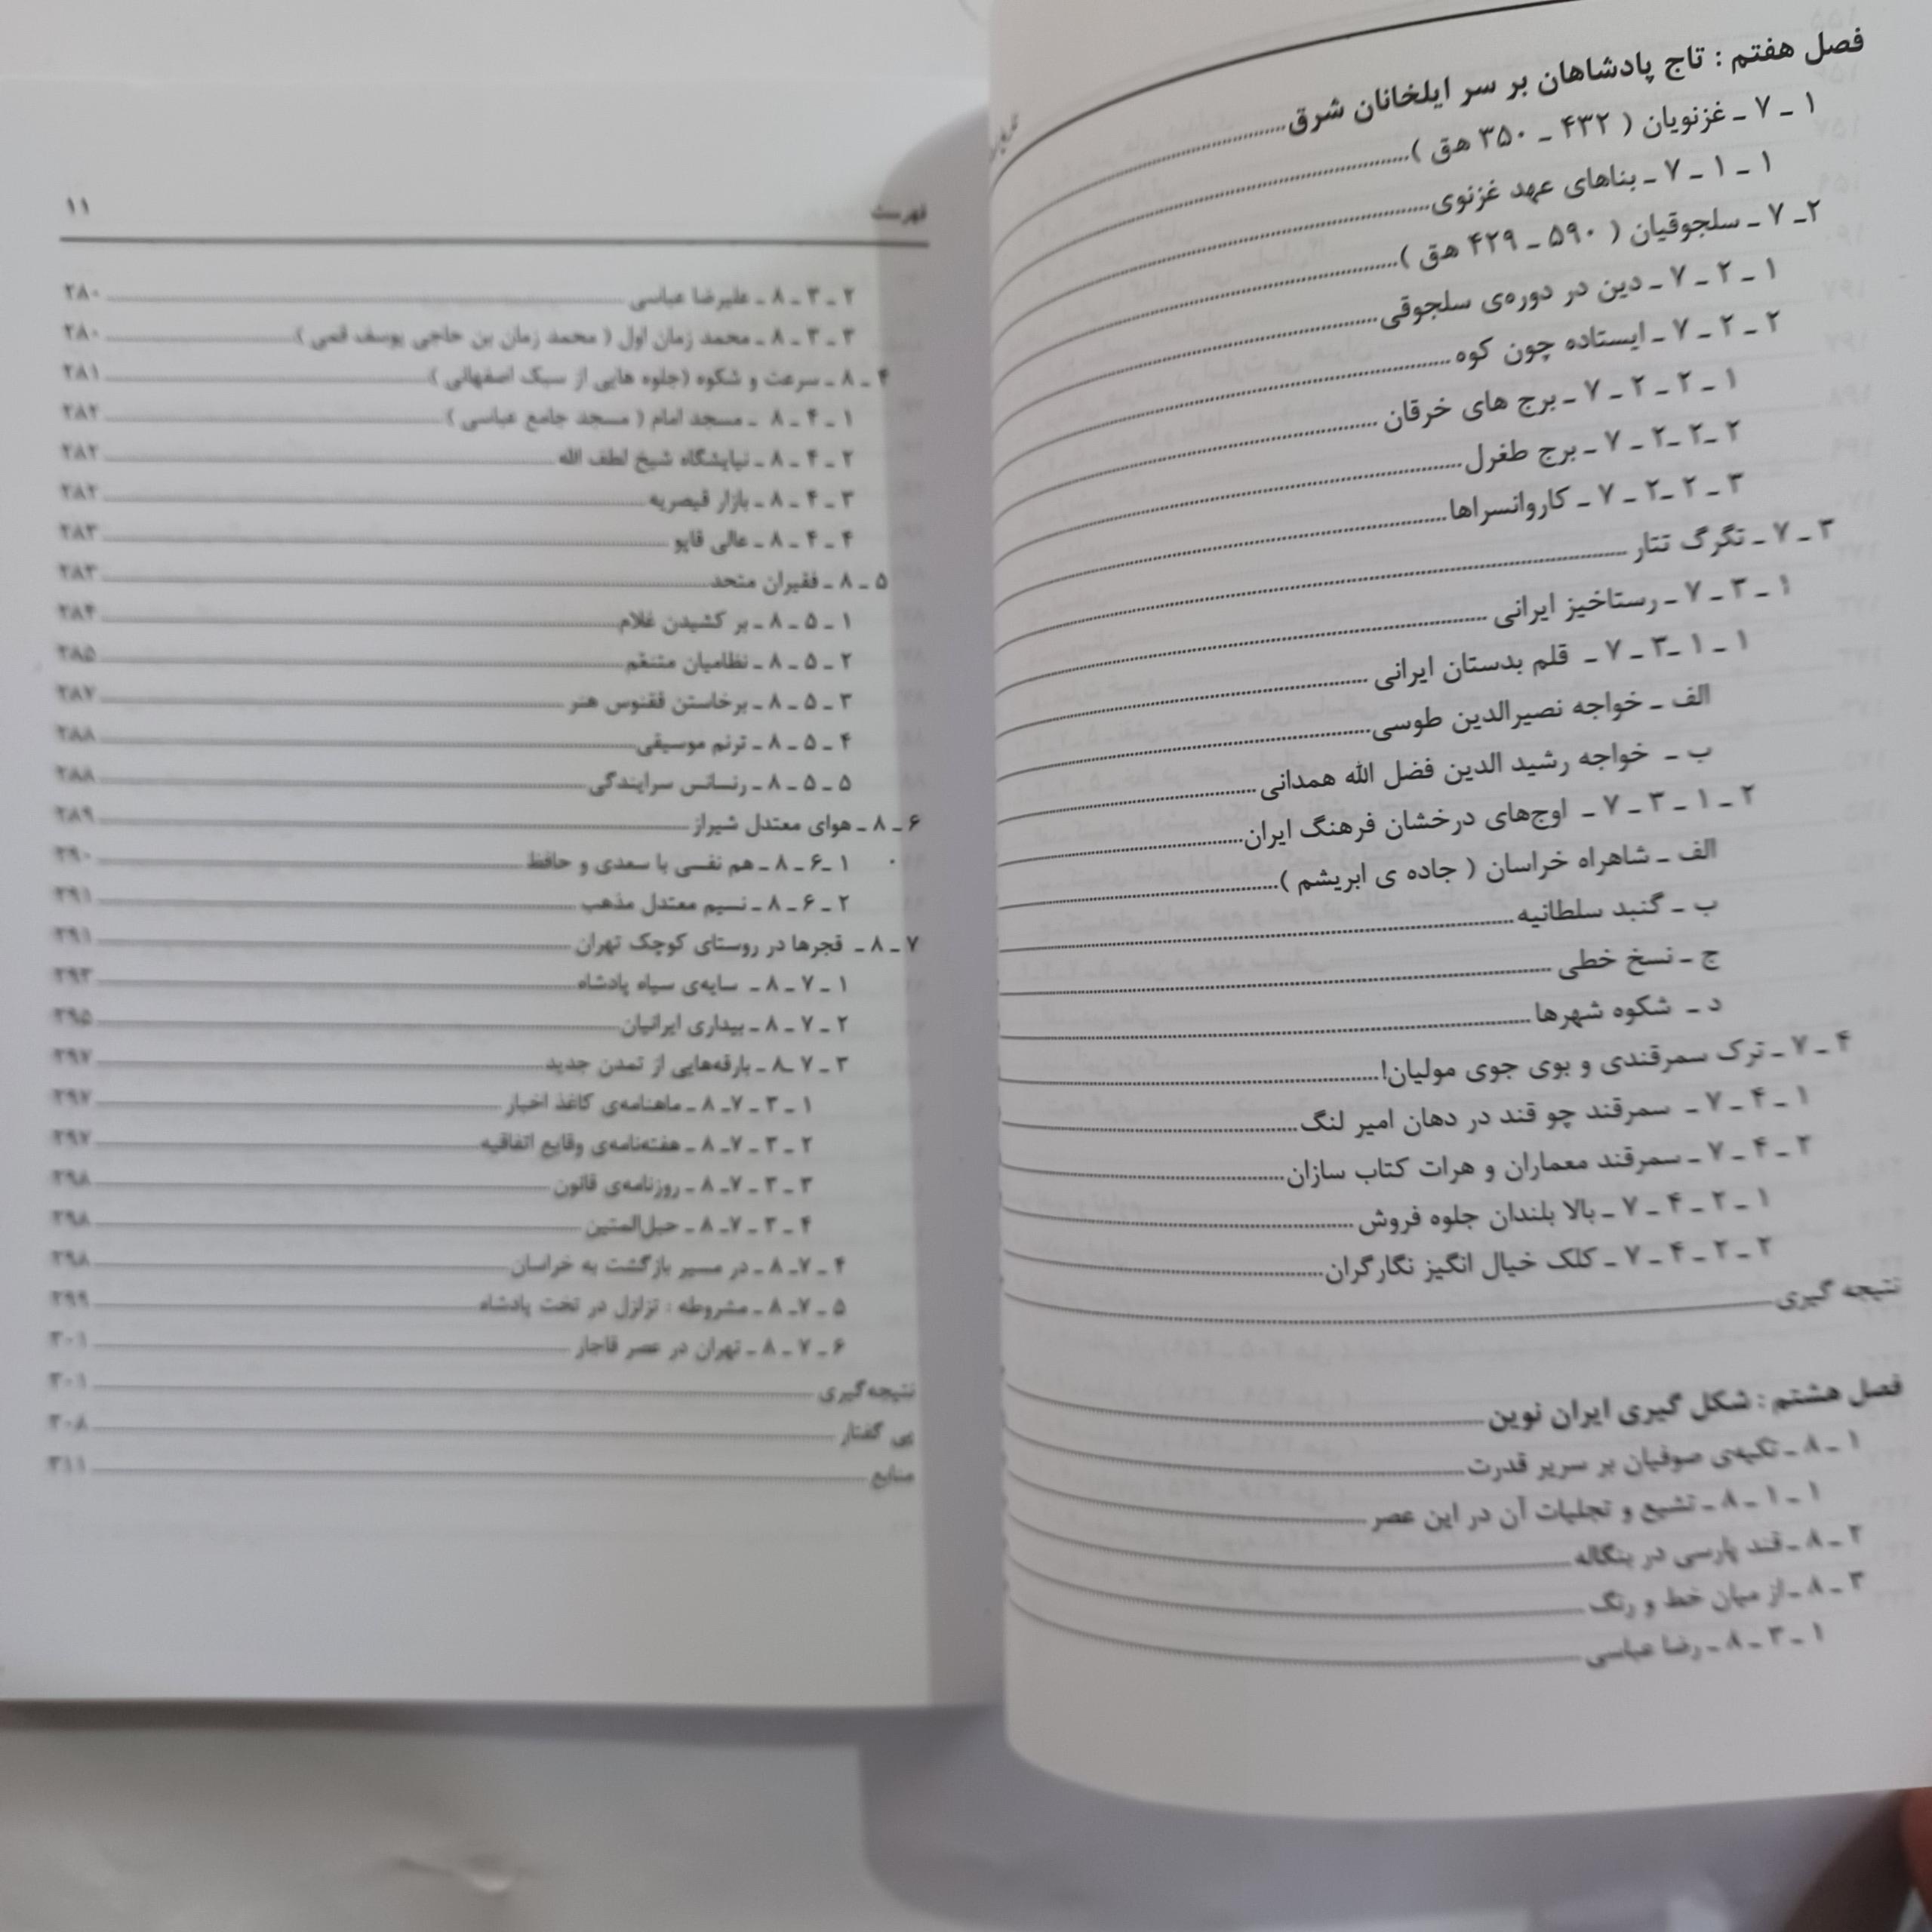 فصل هفتم : تاج پادشاهان بر سر ایلخانان شرق
۱ ـ ۷ ـ غزنویان ( ۴۳۲ ـ ۳۵۰ هـق )
۱ ـ ۱ ـ ۷ ـ بناهای عهد غزنوی
۲ـ ۷ ـ سلجوقیان ( ۵۹۰ ـ ۴۲۹ هـق )
۱ ـ ۲ ـ ۷ ـ دین در دوره‌ی سلجوقی
۲ ـ ۲ ـ ۷ ـ ایستاده چون کوه
۱ ـ ۲ ـ ۲ ـ ۷ ـ برج های خرقان
۲ ـ۲ ـ۲ ـ ۷ ـ برج طغرل
۳ ـ ۲ ـ۲ ـ ۷ ـ کاروانسراها
۳ ـ ۷ ـ تگرگ تتار
۱ ـ ۳ ـ ۷ ـ رستاخیز ایرانی
۱ ـ ۱ ـ۳ ـ ۷ ـ قلم بدستان ایرانی
الف ـ خواجه نصیرالدین طوسی
ب ـ خواجه رشید الدین فضل الله همدانی
۲ ـ ۱ ـ ۳ ـ ۷ ـ اوج‌های درخشان فرهنگ ایران
الف ـ شاهراه خراسان ( جاده ی ابریشم )
ب ـ گنبد سلطانیه
ج ـ نسخ خطی
د ـ شکوه شهرها
۴ ـ ۷ ـ ترک سمرقندی و بوی جوی مولیان!
۱ ـ ۴ ـ ۷ ـ سمرقند چو قند در دهان امیر لنگ
۲ ـ ۴ ـ ۷ ـ سمرقند معماران و هرات کتاب سازان
۱ ـ ۲ ـ ۴ ـ ۷ ـ بالا بلندان جلوه فروش
۲ ـ ۲ ـ ۴ ـ ۷ ـ کلک خیال انگیز نگارگران
نتیجه گیری
فصل هشتم : شکل گیری ایران نوین
۱ ـ ۸ ـ تکیه‌ی صوفیان بر سریر قدرت
۱ ـ ۱ ـ ۸ ـ تشیع و تجلیات آن در این عصر
۲ ـ ۸ ـ قند پارسی در بنگاله
۳ ـ ۸ ـ از میان خط و رنگ
۱ ـ ۳ ـ ۸ ـ رضا عباسی
فهرست ۱۱
۲ ـ ۳ ـ ۸ ـ علیرضا عباسی ۲۸۰
۳ ـ ۳ ـ ۸ ـ محمد زمان اول ( محمد زمان بن حاجی یوسف قمی ) ۲۸۰
۴ ـ ۸ ـ سرعت و شکوه (جلوه هایی از سبک اصفهانی ) ۲۸۱
۱ ـ ۴ ـ ۸ ـ مسجد امام ( مسجد جامع عباسی ) ۲۸۲
۲ ـ ۴ ـ ۸ ـ نیایشگاه شیخ لطف الله ۲۸۲
۳ ـ ۴ ـ ۸ ـ بازار قیصریه ۲۸۲
۴ ـ ۴ ـ ۸ ـ عالی قاپو ۲۸۳
۵ ـ ۸ ـ فقیران متحد ۲۸۳
۱ ـ ۵ ـ ۸ ـ بر کشیدن غلام ۲۸۴
۲ ـ ۵ ـ ۸ ـ نظامیان متنعّم ۲۸۵
۳ ـ ۵ ـ ۸ ـ برخاستن ققنوس هنر ۲۸۷
۴ ـ ۵ ـ ۸ ـ ترنم موسیقی ۲۸۸
۵ ـ ۵ ـ ۸ ـ رنسانس سرایندگی ۲۸۸
۶ ـ ۸ ـ هوای معتدل شیراز ۲۸۹
۱ ـ۶ ـ ۸ ـ هم نفسی با سعدی و حافظ ۲۹۰
۲ ـ ۶ ـ ۸ ـ نسیم معتدل مذهب ۲۹۱
۷ ـ ۸ ـ قجرها در روستای کوچک تهران ۲۹۱
۱ ـ ۷ ـ ۸ ـ سایه‌ی سیاه پادشاه ۲۹۳
۲ ـ ۷ ـ ۸ ـ بیداری ایرانیان ۲۹۵
۳ ـ ۷ ـ۸ ـ بارقه‌هایی از تمدن جدید ۲۹۷
۱ ـ ۳ ـ ۷ـ ۸ ـ ماهنامه‌ی کاغذ اخبار ۲۹۷
۲ ـ ۳ ـ ۷ـ ۸ ـ هفته‌نامه‌ی وقایع اتفاقیه ۲۹۷
۳ ـ ۳ ـ ۷ـ ۸ ـ روزنامه‌ی قانون ۲۹۸
۴ ـ ۳ ـ ۷ـ ۸ ـ حبل‌المتین ۲۹۸
۴ ـ ۷ـ ۸ ـ در مسیر بازگشت به خراسان ۲۹۸
۵ ـ ۷ـ ۸ ـ مشروطه : تزلزل در تخت پادشاه ۲۹۹
۶ ـ ۷ ـ ۸ ـ تهران در عصر قاجار ۳۰۱
نتیجه‌گیری ۳۰۱
پی گفتار ۳۰۸
منابع ۳۱۱